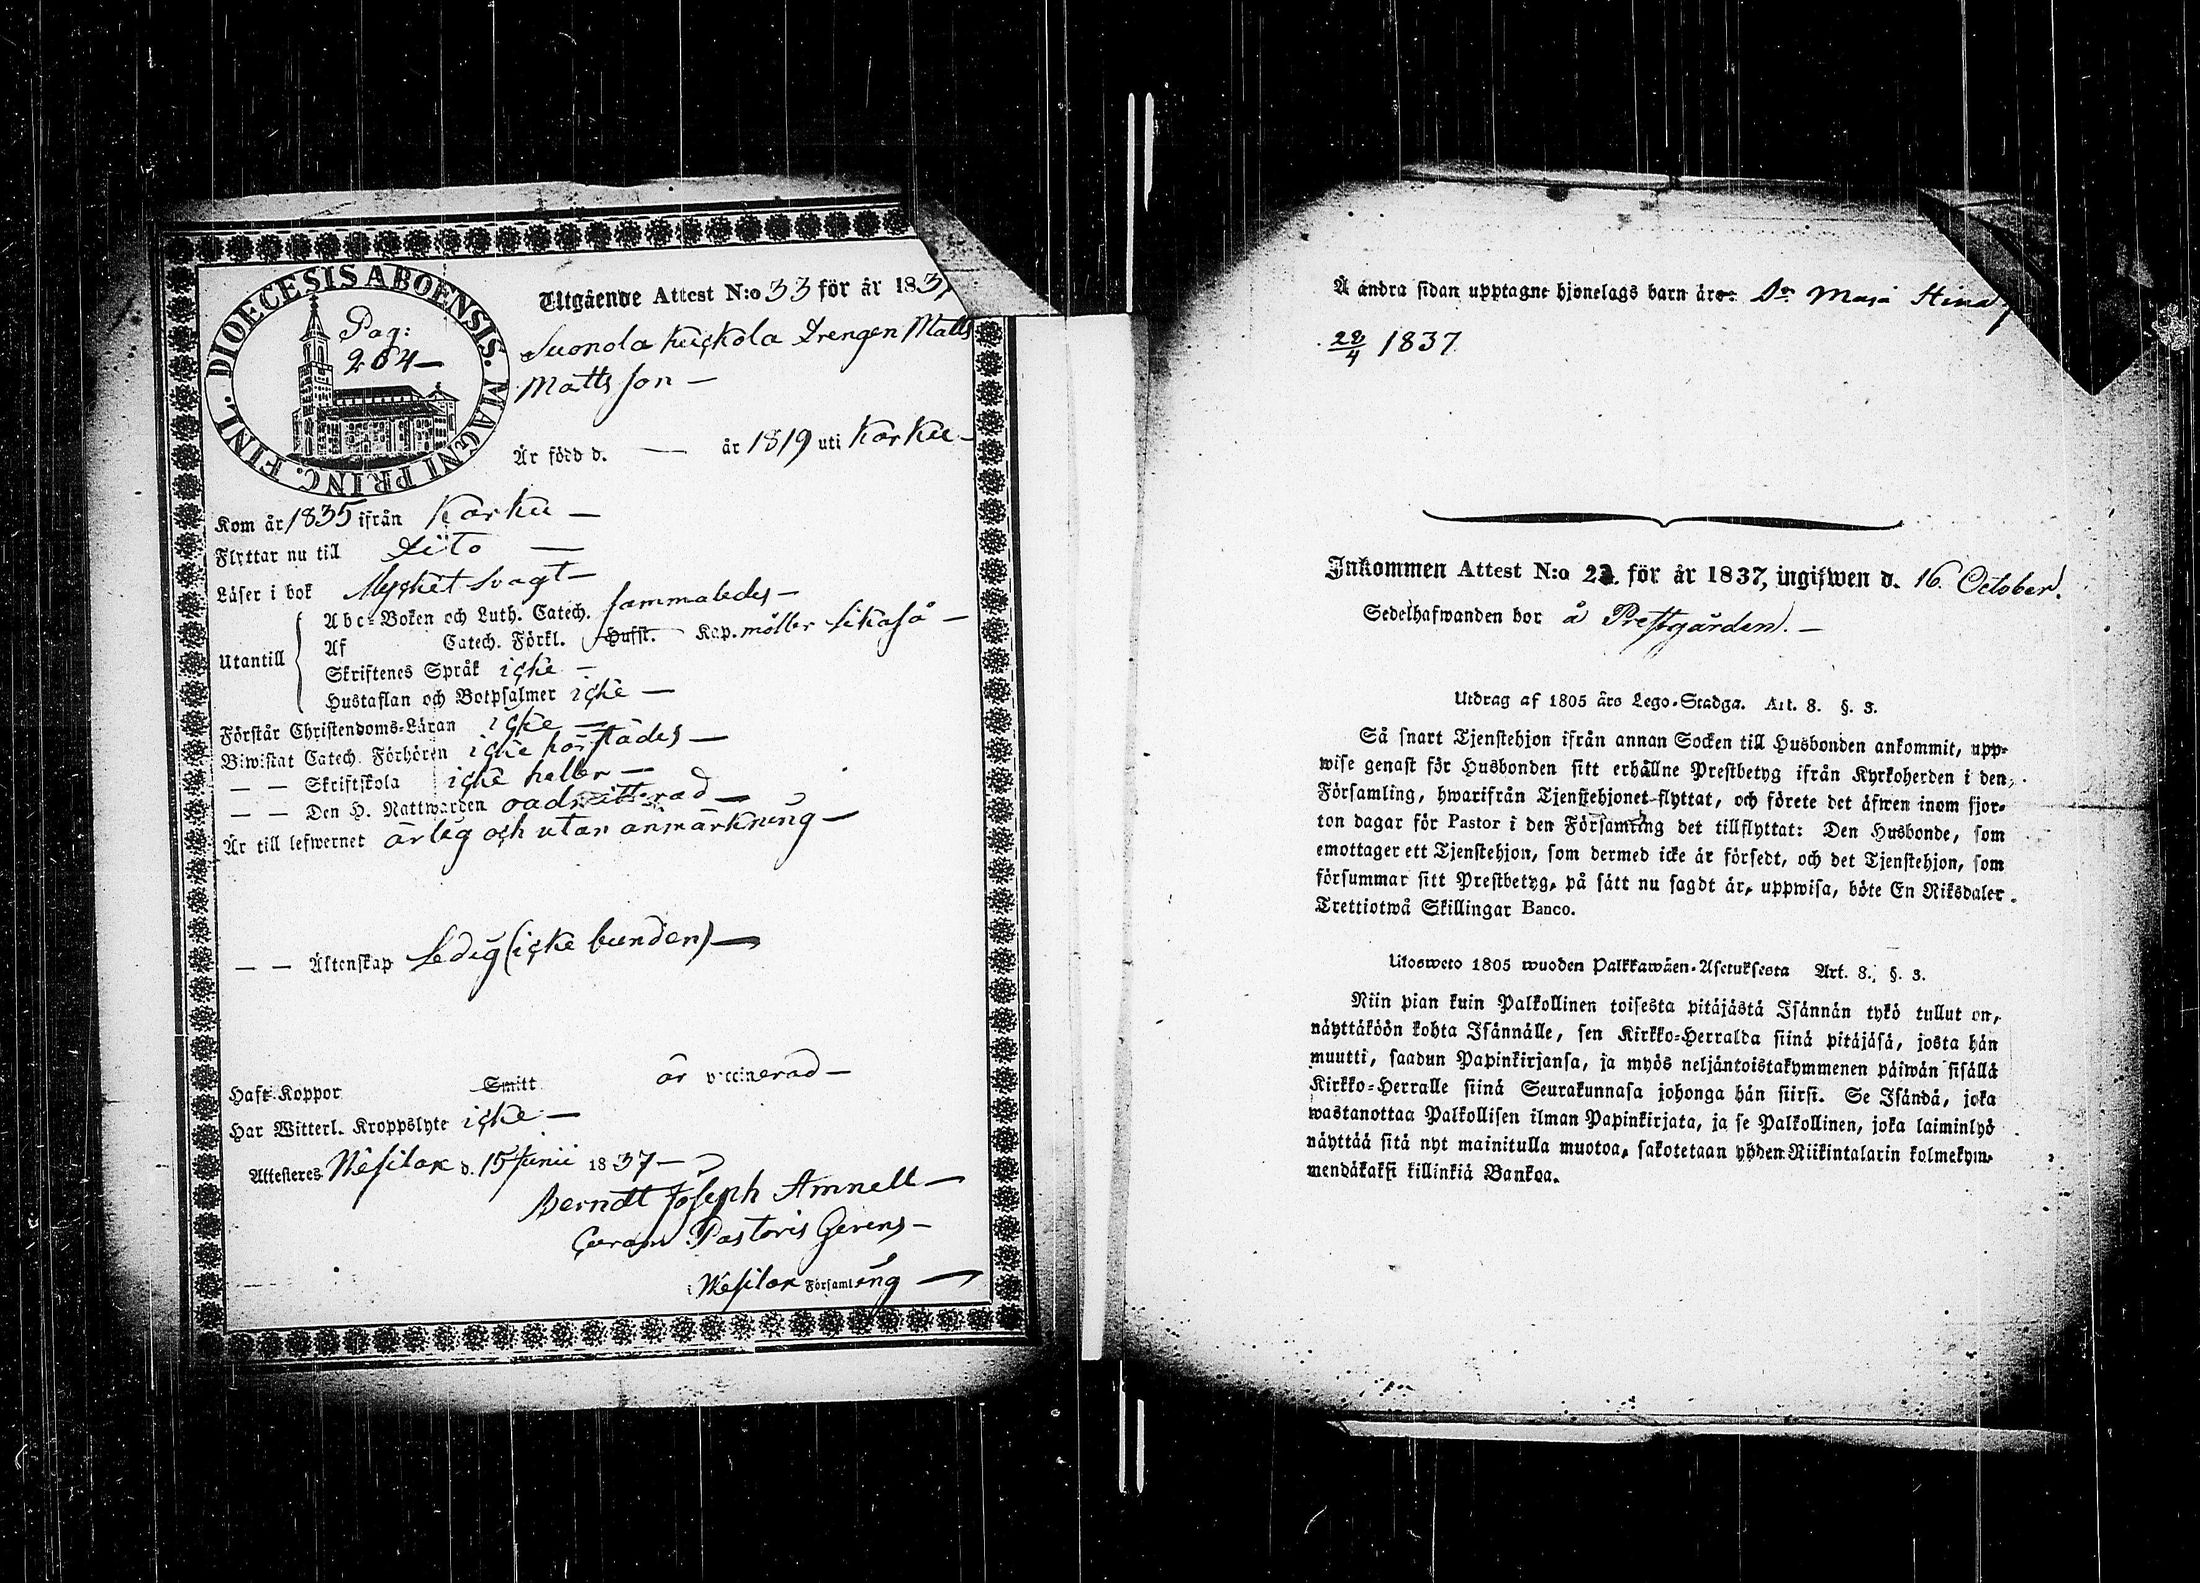 DIOECESIS ABOENSIS. MAGNI PRINC. FINL.
Pag:
264—
Utgående Attest N:o 33 för år 1837
Suonola Kuckola Drengen Matts
Mattsson —
Är född d. — år 1819 uti Karku —
Kom år 1835 ifrån Karku —
Flyttar nu till Dito —
Läser i bok Mycket svagt —
Utantill
Abc-Boken och Luth. Catech. sammaledes —
Af Catech. Förkl. Hufst. Kap. möller likaså —
Skriftenes Språk icke —
Hustaflan och Botpsalmer icke —
Förstår Christendoms-Läran icke —
Biwistat Catech. Förhören icke härstädes —
— — Skriftskola icke heller —
— — Den H. Nattwarden oadmitterad —
Är till lefwernet ärlig och utan anmärkning —
— — Äktenskap Ledig (icke bunden) —
Haft Koppor Smitt är vaccinerad —
Har Witterl. Kroppslyte icke —
Attesteres Wesilax d. 15 Junii 1837 —
Berndt Joseph Amnell —
Curam Pastoris Gerens —
i Wesilax Församling —
Å andra sidan upptagne hjonelags barn äro: Dr Maja Stina,
28/4 1837
Inkommen Attest N:o 22. för år 1837, ingifwen d. 16. October.
Sedelhafwanden bor å Prestgården. —
Utdrag af 1805 års Lego-Stadga. Art. 8. §. 3.
Så snart Tjenstehjon ifrån annan Socken till Husbonden ankommit, upp-
wise genast för Husbonden sitt erhållne Prestbetyg ifrån Kyrkoherden i den
Församling, hwarifrån Tjenstehjonet flyttat, och förete det äfwen inom fjor-
ton dagar för Pastor i den Församling det tillflyttat: Den Husbonde, som
emottager ett Tjenstehjon, som dermed icke är försedt, och det Tjenstehjon, som
försummar sitt Prestbetyg, på sätt nu sagdt är, uppwisa, böte En Riksdaler
Trettiotwå Skillingar Banco.
Ulosweto 1805 wuoden Palkkawäen-Asetuksesta Art. 8. §. 3.
Niin pian kuin Palkollinen toisesta pitäjästä Isännän tykö tullut on,
näyttäköön kohta Isännälle, sen Kirkko-Herralda siinä pitäjäsä, josta hän
muutti, saadun Papinkirjansa, ja myös neljäntoistakymmenen päiwän sisällä
Kirkko-Herralle siinä Seurakunnasa johonga hän siirsi. Se Isändä, joka
wastanottaa Palkollisen ilman Papinkirjata, ja se Palkollinen, joka laiminlyö
näyttää sitä nyt mainitulla muotoa, sakotetaan yhden Riikintalarin kolmekym-
mendäkaksi killinkiä Bankoa.